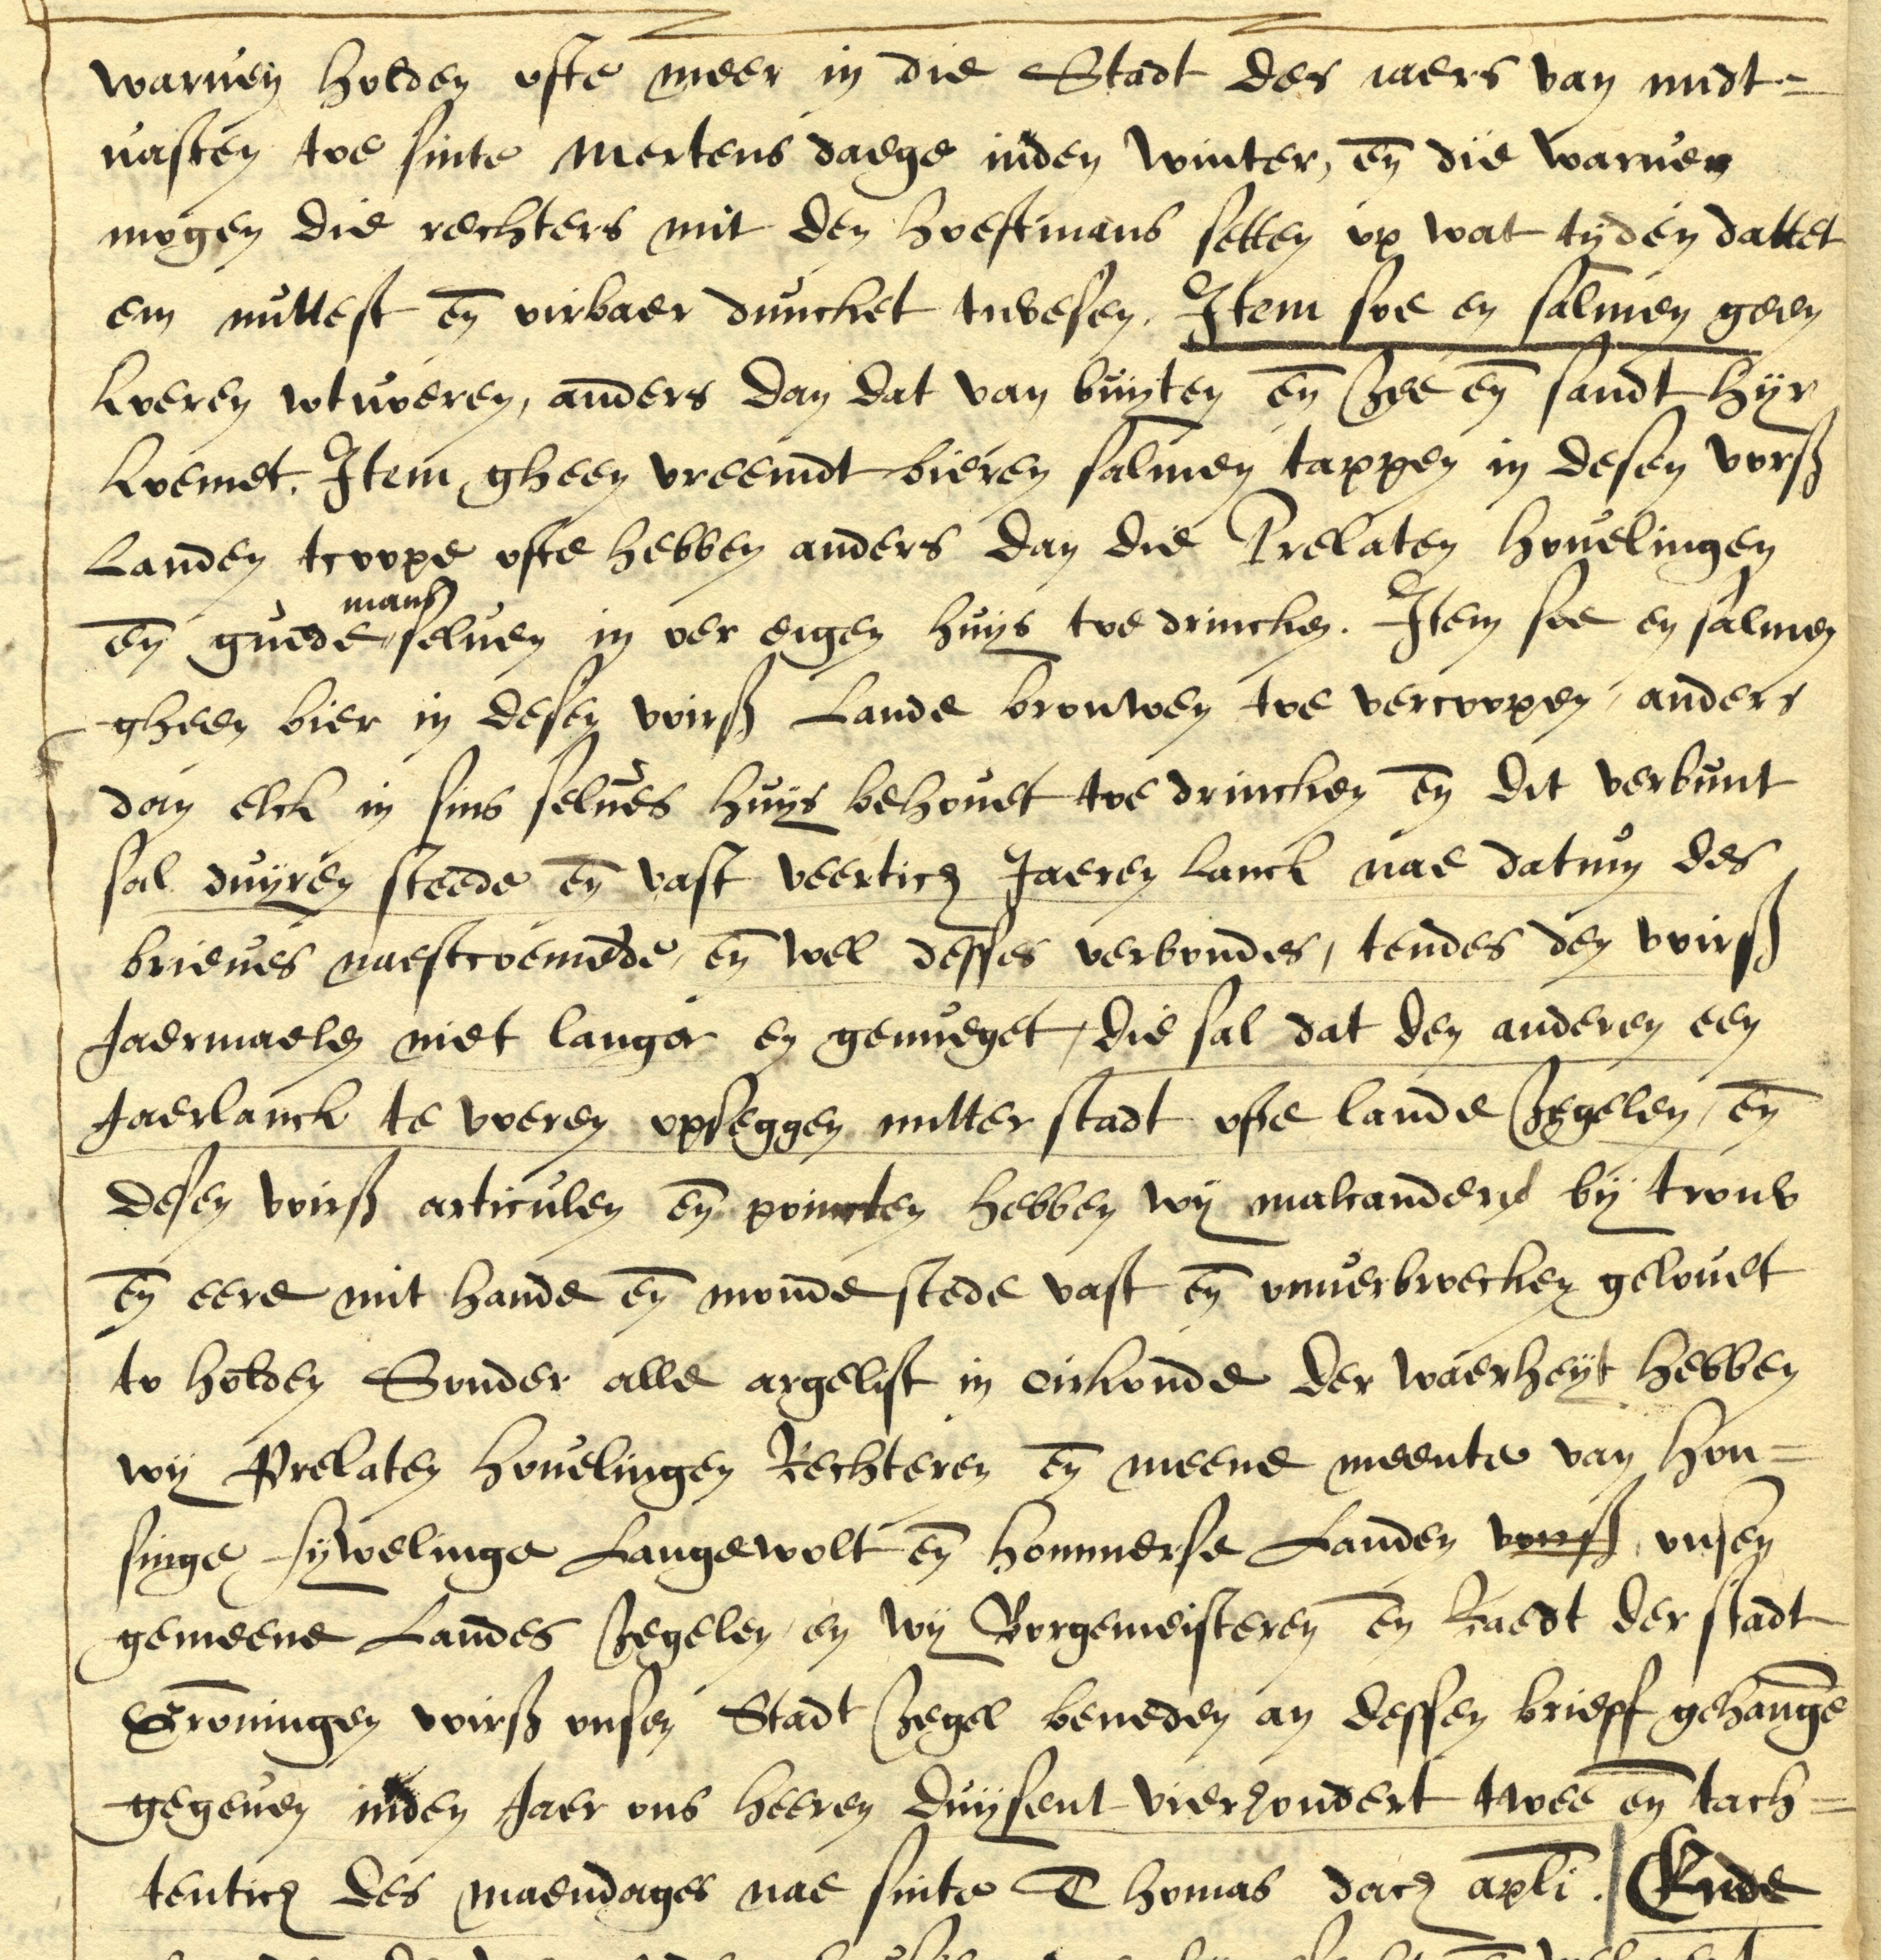 waruen holden ofte meer in die Stadt des iaers van midt=
uasten toe sinte Mertens daege inden winter, en̄ die waruen
mogen die rechters mit den hoeftmans setten op wat tyden dattet
em nuttest en̄ oirbaer duncket twesen. Item soe en salmen geen
koeren wtuoeren, anders dan dat van buyten en̄ Zee en̄ sandt hyr
koemet. Item gheen vreemdt bieren salmen tappen in desen vorß
Landen tcoope ofte hebben anders dan die Prelaten houelingen
en̄ guede manß seluen in oer eigen huys toe drincken. Item soe en salmen
gheen bier in desen voirß Lande brouwen toe vercoopen, anders
dan elck in sins selues huys behouet toe drincken en̄ dit verbunt
sal duyren steede en̄ vast veertich Jaeren lanck nae datum des
brieues naestcoemede, en̄ wel desses verbondes, tendes den voirß
Jaermaelen niet langer en genueget, die sal dat den anderen een
Jaerlanck te voeren opseggen mitter stadt ofte lande Zegelen, en̄
desen voirß articulen en̄ poincten hebben wy malcanderen by trouw
en̄ eere mit hande en̄ monde stede vast en̄ onuerbroecken gelouet
to holden Sonder alle argelist in oirkonde der waerheyt hebben
wy Prelaten houelingen Rechteren en̄ meene meente van Hon=
singe Fywelinge Langewolt en̄ Hommerse Landen voirß onsen
gemeene Landes Zegelen, en wy Borgemeisteren en̄ Raedt der stadt
Gro̅ningen voirß onsen Stadt Zegel beneden an dessen brieff gehange̅
gegeuen inden Jaer ons heeren duysent vierhondert twee en̄ tach=
tentich des maendages nae sinte Thomas dach apl̅i. Ende